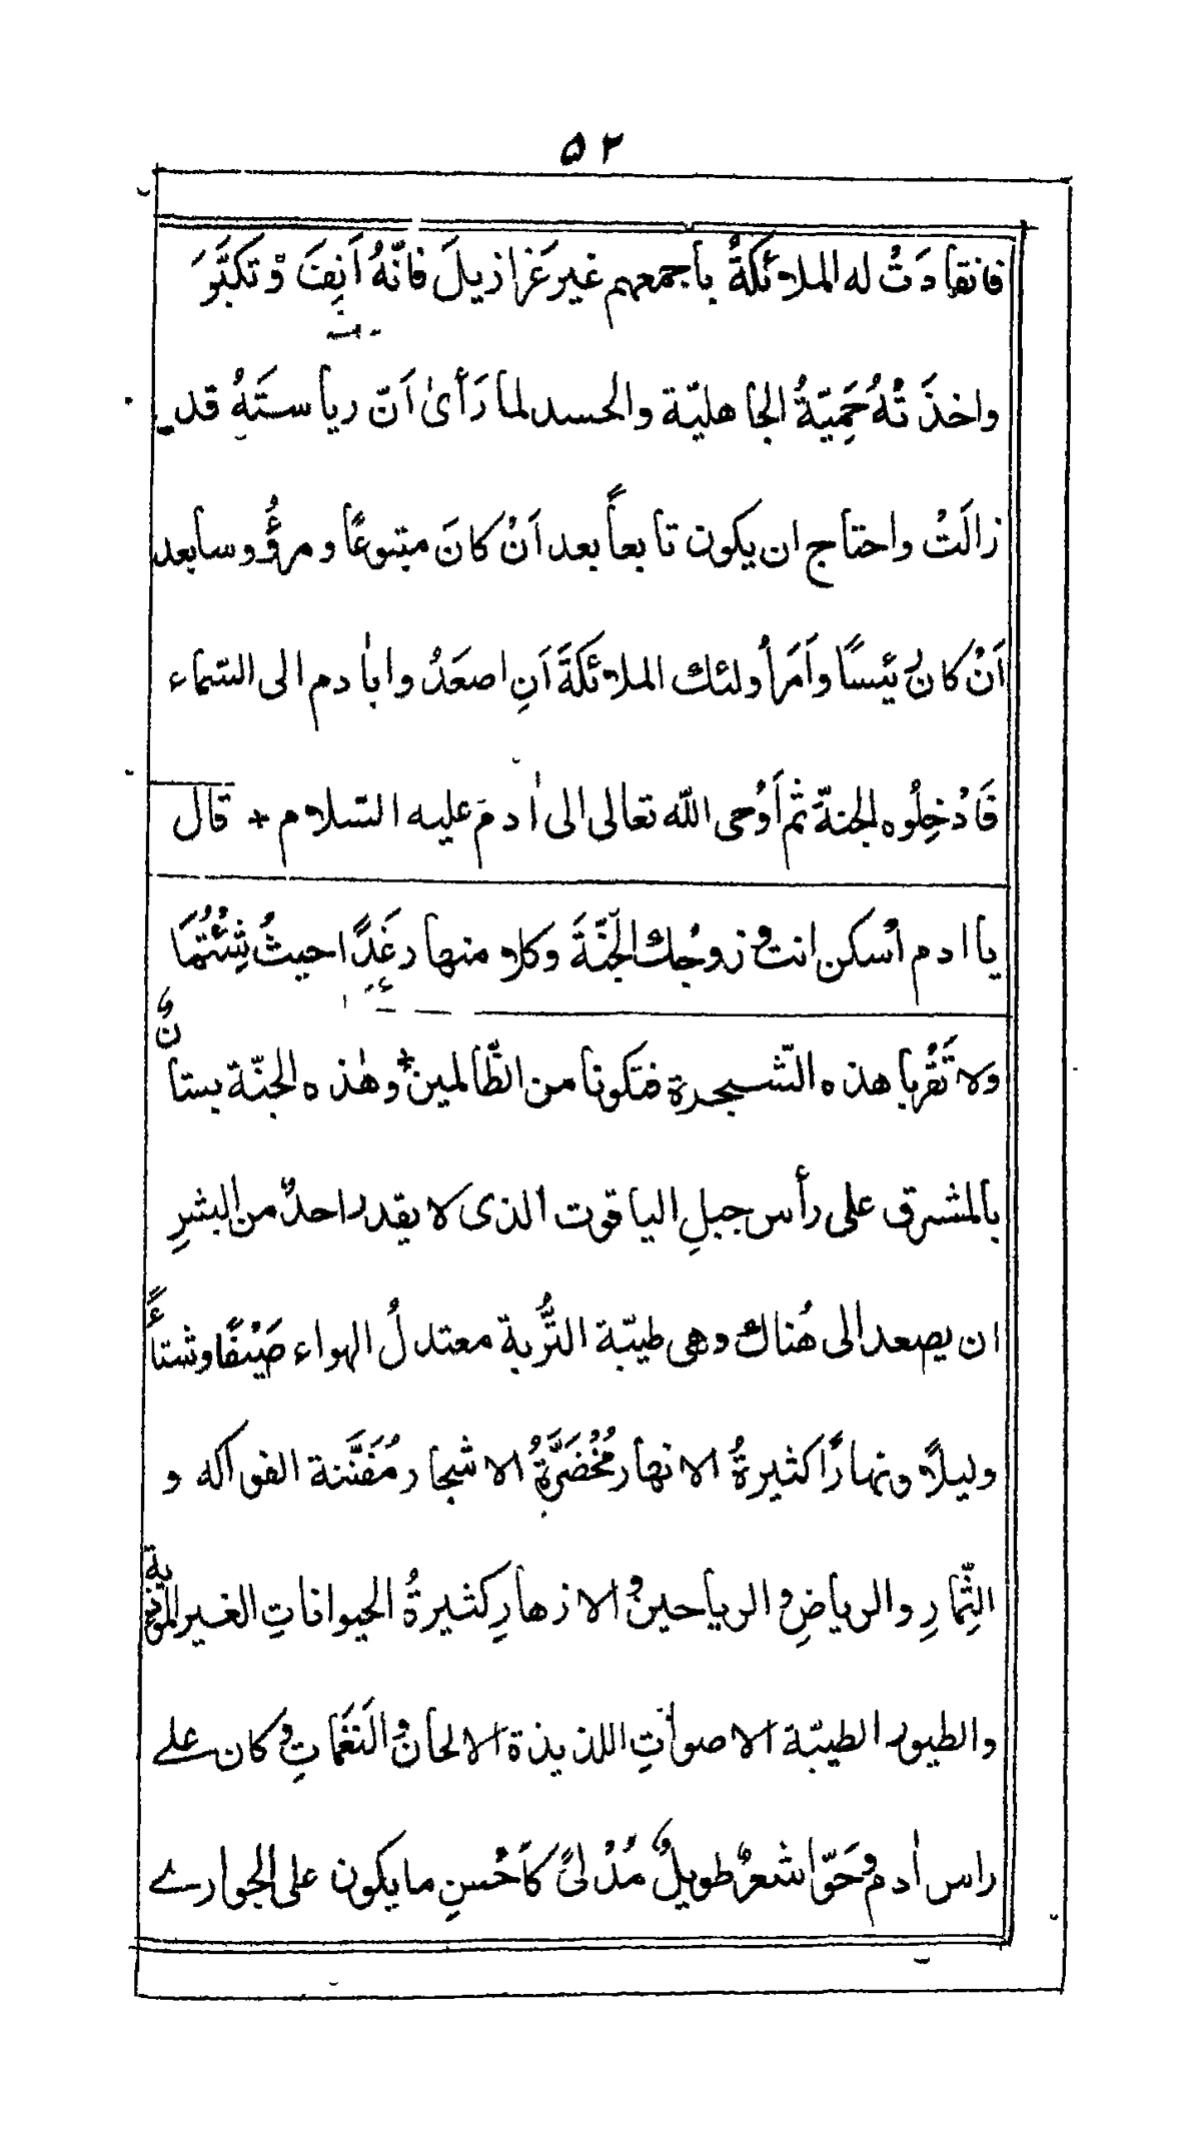 ۵۲
فانقادَتْ له الملائكةُ باجمعهم غير عزازيلَ فانّهُ اَنِفَ وْتكبَّرَ
واخذَتْهُ حَمِيّةُ الجاهليّة والحسد لما رَأىٰ اَنّ رياستَهُ قد
زالَتْ واحتاج ان يكون تابعاً بعد اَنْ كانَ متبوعًا ومرؤُوسا بعد
اَنْ كان رئيسًا واَمَرَ اُولئك الملائكةَ اَنِ اصعَدُوا بٰادم الى السّماء
فَادْخِلُوه الجنّةَ ثم اَوْحى اللّه تعالى الى اٰدمَ عليه السّلام + قال
يا ادم اُسكن انتَ وزوجُك الجَنّةَ وكلا منها رغَدًا حيثُ شِئْتُمَا
ولا تَقْربا هذه الشّجرة فتكونا من الظّالمين + وهٰذه الجنّة بستانٌ
بالمشرق على رأس جبلِ الياقوت الذى لا يقدر احدٌ من البشرِ
ان يصعد الى هُناك وهى طيبّة التُّربة معتدلُ الهواء صَيْفًا وشتاءً
وليلًا ونهارًا كثيرةُ الانهار مُخْضَرَّةُ الاشجار مُفَنَّنة الفواكه و
الثِّمارِ والرياضِ والرياحين والازهارِ كثيرةُ الحيوانات الغير الموذية
والطيور الطيبّة الاصواتِ اللذيذة الالحان والنَغَماتِ وكان على
راس اٰدم وحَوّا شعرٌ طويلٌ مُدْلىً كاَحْسنِ ما يكون على الجوارے